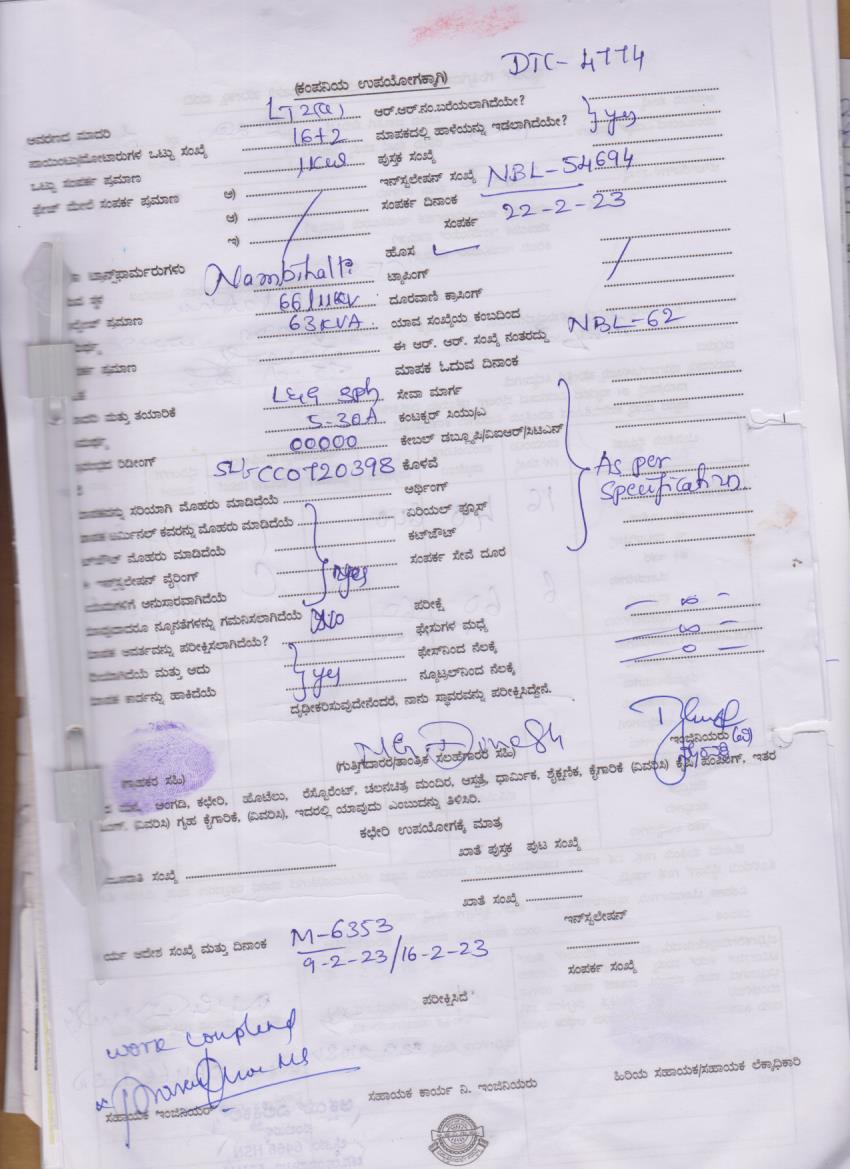 DTC- 4774
(ಕಂಪನಿಯ ಉಪಯೋಗಕ್ಕಾಗಿ)
ಆವರಣದ ಮಾದರಿ LT 2(a) ಆರ್.ಆರ್.ನಂ.ಬರೆಯಲಾಗಿದೆಯೇ?
ಪಾಯಿಂಟು/ಮೋಟಾರುಗಳ ಒಟ್ಟು ಸಂಖ್ಯೆ 16+2 ಮಾಪಕದಲ್ಲಿ ಹಾಳೆಯನ್ನು ಇಡಲಾಗಿದೆಯೇ? yes
ಒಟ್ಟು ಸಂಪರ್ಕ ಪ್ರಮಾಣ 1Kw ಪುಸ್ತಕ ಸಂಖ್ಯೆ
ಫೇಜ್ ಮೇಲೆ ಸಂಪರ್ಕ ಪ್ರಮಾಣ ಅ) ಇನ್‌ಸ್ಟಲೇಷನ್ ಸಂಖ್ಯೆ NBL-54694
ಆ) ಸಂಪರ್ಕ ದಿನಾಂಕ 22-2-23
ಇ) ಸಂಪರ್ಕ
ಹೊಸ
ಟ್ರಾನ್ಸ್‌ಫಾರ್ಮರುಗಳು Nambihalli ಟ್ಯಾಪಿಂಗ್
ಸ್ಥಳ 66/11KV ದೂರವಾಣಿ ಕ್ರಾಸಿಂಗ್
ಪ್ರಮಾಣ 63KVA ಯಾವ ಸಂಖ್ಯೆಯ ಕಂಬದಿಂದ
ಈ ಆರ್. ಆರ್. ಸಂಖ್ಯೆ ನಂತರದ್ದು NBL-62
ಪ್ರಮಾಣ ಮಾಪಕ ಓದುವ ದಿನಾಂಕ
L&G Sph ಸೇವಾ ಮಾರ್ಗ
ಮತ್ತು ತಯಾರಿಕೆ 5-30A ಕಂಟಕ್ಟರ್ ಸಿಯು/ಎ
00000 ಕೇಬಲ್ ಡಬ್ಲ್ಯೂಪಿ/ವಿಐಆರ್/ಸಿಟಿಎಸ್
ರಿಡೀಂಗ್ ಕೊಳವೆ As per
ಸರಿಯಾಗಿ ಮೊಹರು ಮಾಡಿದೆಯೆ ಅರ್ಥಿಂಗ್ Specification
ಟರ್ಮಿನಲ್ ಕವರನ್ನು ಮೊಹರು ಮಾಡಿದೆಯೆ ಏರಿಯಲ್ ಫ್ಯೂಸ್
ಮೊಹರು ಮಾಡಿದೆಯೆ ಕಟ್‌ಔಟ್
ಇನ್‌ಸ್ಟಲೇಷನ್ ವೈರಿಂಗ್ yes ಸಂಪರ್ಕ ಸೇವೆ ದೂರ
ಅನುಸಾರವಾಗಿದೆಯೆ
ನ್ಯೂನತೆಗಳನ್ನು ಗಮನಿಸಲಾಗಿದೆಯೆ No ಪರೀಕ್ಷೆ — ∞ -
ಪರೀಕ್ಷಿಸಲಾಗಿದೆಯೆ? ಫೇಸುಗಳ ಮಧ್ಯೆ — ∞ -
ಮತ್ತು ಅದು ಫೇಸ್‌ನಿಂದ ನೆಲಕ್ಕೆ — 0 -
ಕಾರ್ಡನ್ನು ಹಾಕಿದೆಯೆ yes ನ್ಯೂಟ್ರಲ್‌ನಿಂದ ನೆಲಕ್ಕೆ
ದೃಢೀಕರಿಸುವುದೇನೆಂದರೆ, ನಾನು ಸ್ಥಾವರವನ್ನು ಪರೀಕ್ಷಿಸಿದ್ದೇನೆ.
ಗ್ರಾಹಕರ ಸಹಿ) (ಗುತ್ತಿಗೆದಾರರ/ತಾಂತ್ರಿಕ ಸಲಹೆಗಾರರ ಸಹಿ) ಇಂಜಿನಿಯರು (ವಿ)
ಅಂಗಡಿ, ಕಛೇರಿ, ಹೊಟೆಲು, ರೆಸ್ಟೊರೆಂಟ್, ಚಲನಚಿತ್ರ ಮಂದಿರ, ಆಸ್ಪತ್ರೆ, ಧಾರ್ಮಿಕ, ಶೈಕ್ಷಣಿಕ, ಕೈಗಾರಿಕೆ (ವಿವರಿಸಿ) ಕೃಷಿ ಪಂಪಿಂಗ್, ಇತರ
(ವಿವರಿಸಿ) ಗೃಹ ಕೈಗಾರಿಕೆ, (ವಿವರಿಸಿ), ಇದರಲ್ಲಿ ಯಾವುದು ಎಂಬುದನ್ನು ತಿಳಿಸಿರಿ.
ಕಛೇರಿ ಉಪಯೋಗಕ್ಕೆ ಮಾತ್ರ
ಖಾತೆ ಪುಸ್ತಕ ಪುಟ ಸಂಖ್ಯೆ
ಸಂಖ್ಯೆ
ಖಾತೆ ಸಂಖ್ಯೆ
ಇನ್‌ಸ್ಟಲೇಷನ್
ಆದೇಶ ಸಂಖ್ಯೆ ಮತ್ತು ದಿನಾಂಕ M-6353
9-2-23/16-2-23
ಸಂಪರ್ಕ ಸಂಖ್ಯೆ
ಪರೀಕ್ಷಿಸಿದೆ
work
ಸಹಾಯಕ ಇಂಜಿನಿಯರ್ ಸಹಾಯಕ ಕಾರ್ಯ ನಿ. ಇಂಜಿನಿಯರು ಹಿರಿಯ ಸಹಾಯಕ/ಸಹಾಯಕ ಲೆಕ್ಕಾಧಿಕಾರಿ